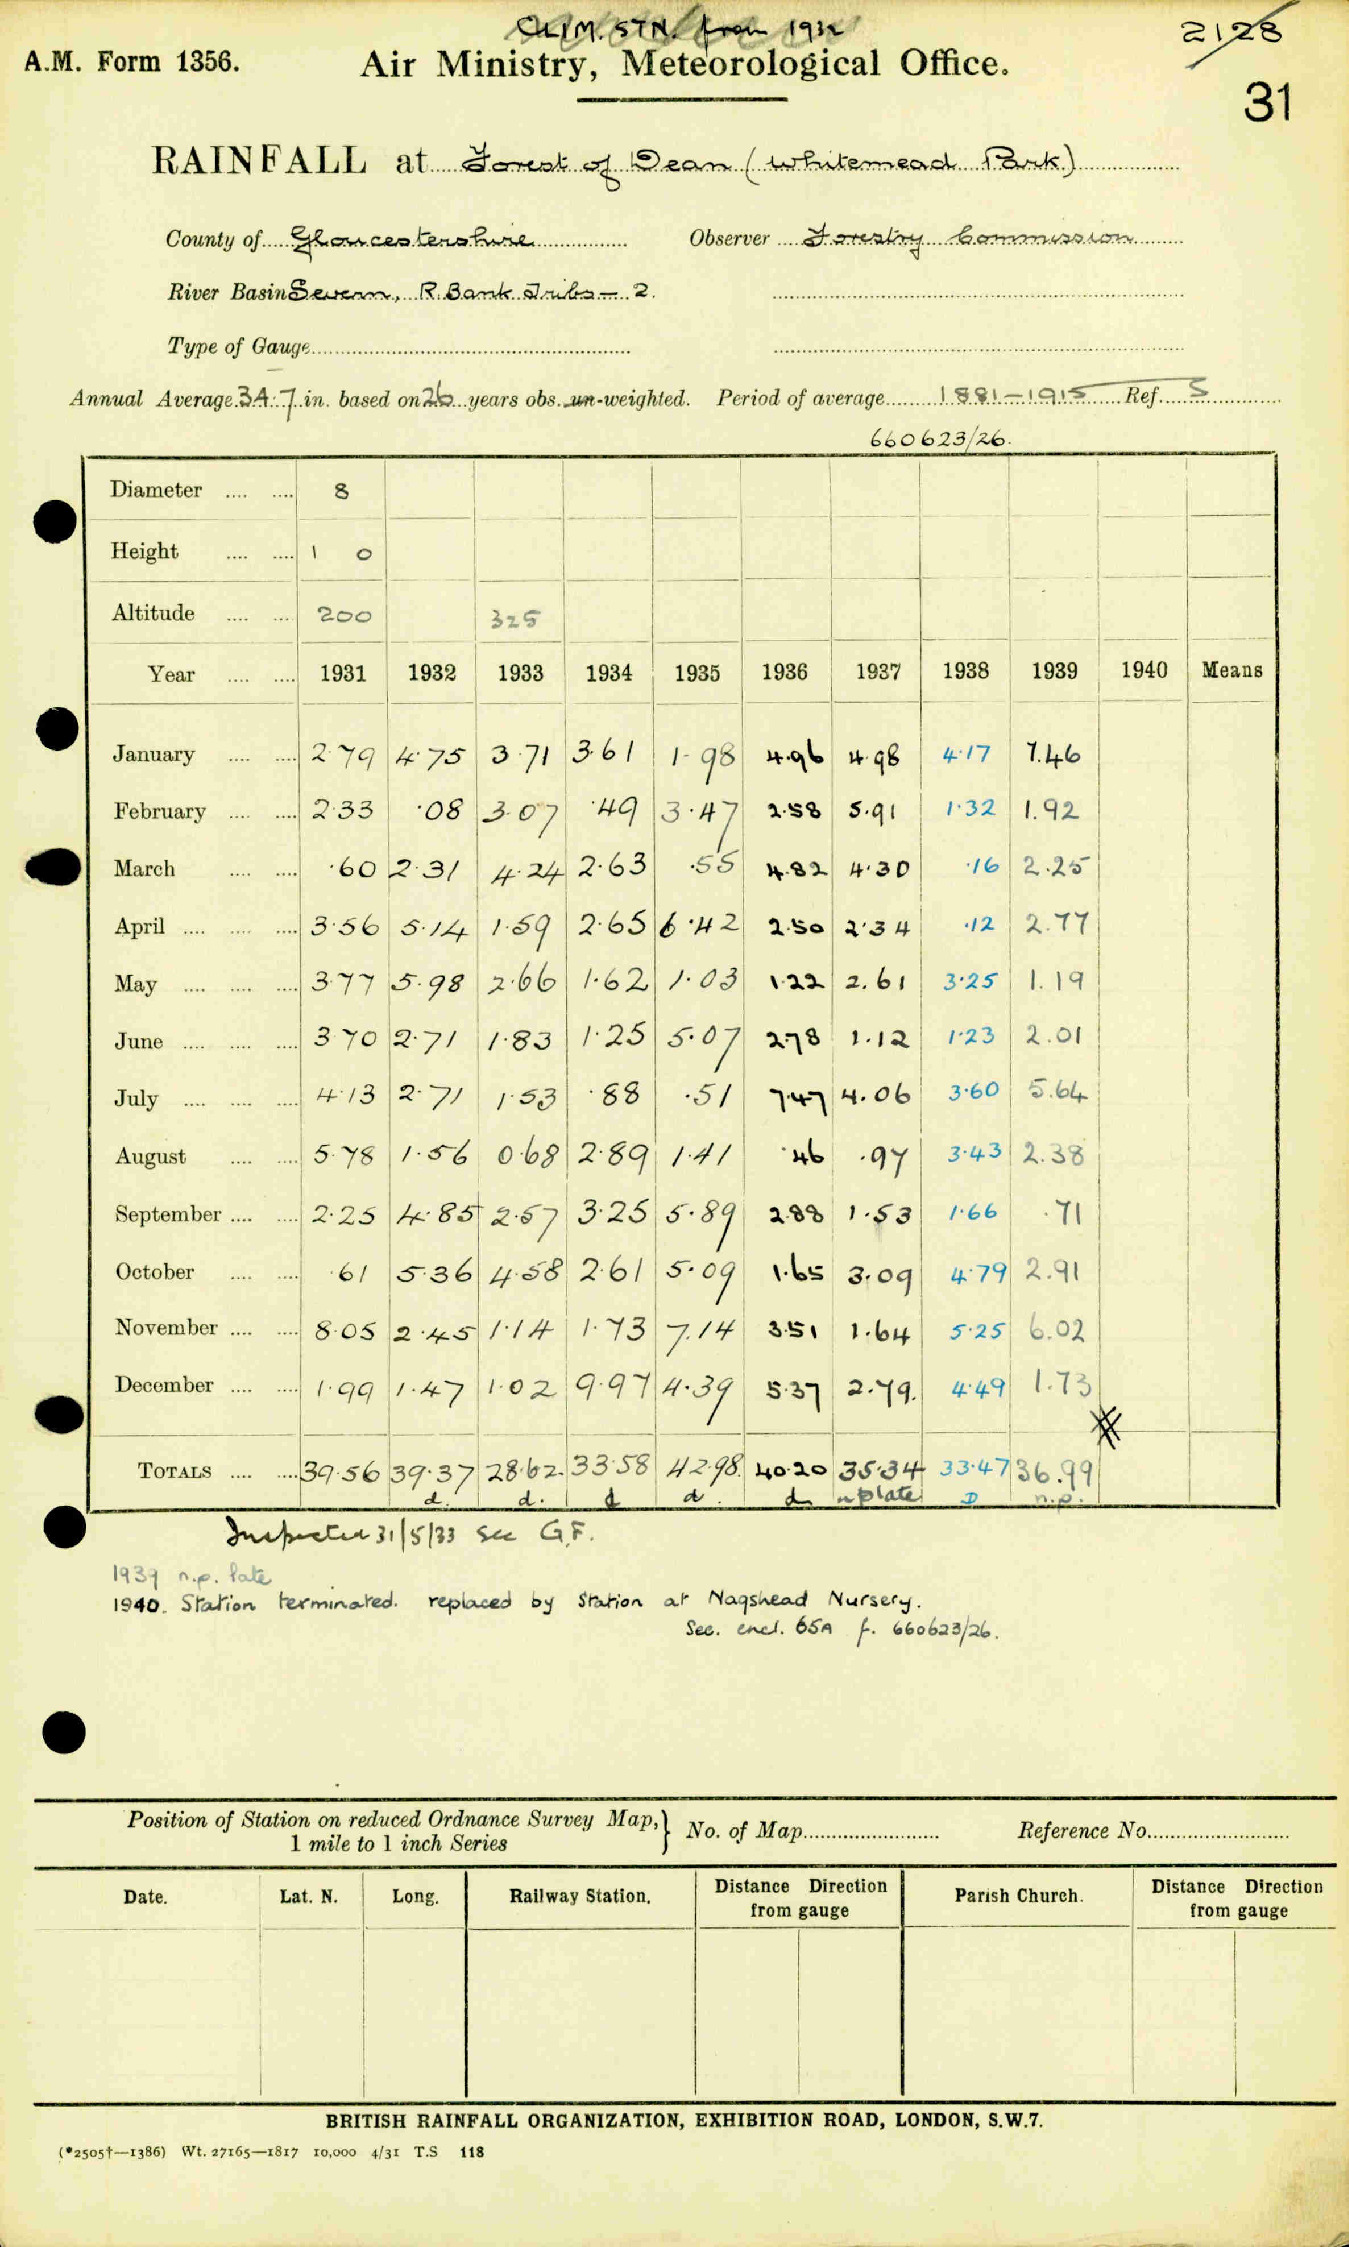 CLIM. STN. from 1932
2128
A.M. Form 1356.
Air Ministry, Meteorological Office.
31
RAINFALL at Forest of Dean (Whitemead Park)
County of Gloucestershire Observer Forestry Commission
River Basin Severn, R Bank Tribs – 2.
Type of Gauge
Annual Average 34.7 in. based on 26 years obs. un-weighted. Period of average 1881–1915 Ref. S
660623/26.
Diameter 8
Height 1 0
Altitude 200 325
Year 1931 1932 1933 1934 1935 1936 1937 1938 1939 1940 Means
January 2.79 4.75 3.71 3.61 1.98 4.96 4.98 4.17 7.46
February 2.33 .08 3.07 .49 3.47 2.58 5.91 1.32 1.92
March .60 2.31 4.24 2.63 .55 4.82 4.30 .16 2.25
April 3.56 5.14 1.59 2.65 6.42 2.50 2.34 .12 2.77
May 3.77 5.98 2.66 1.62 1.03 1.22 2.61 3.25 1.19
June 3.70 2.71 1.83 1.25 5.07 2.78 1.12 1.23 2.01
July 4.13 2.71 1.53 .88 .51 7.47 4.06 3.60 5.64
August 5.78 1.56 0.68 2.89 1.41 .46 .97 3.43 2.38
September 2.25 4.85 2.57 3.25 5.89 2.88 1.53 1.66 .71
October .61 5.36 4.58 2.61 5.09 1.65 3.09 4.79 2.91
November 8.05 2.45 1.14 1.73 7.14 3.51 1.64 5.25 6.02
December 1.99 1.47 1.02 9.97 4.39 5.37 2.79 4.49 1.73
TOTALS 39.56 39.37 28.62 33.58 42.98 40.20 35.34 33.47 36.99
d. d. d d. d n plate D n.p.
Inspected 31/5/33 see G.F.
1939 n.p. late
1940. Station terminated. replaced by Station at Nagshead Nursery.
See. encl. 65A f. 660623/26.
Position of Station on reduced Ordnance Survey Map,} No. of Map Reference No.
1 mile to 1 inch Series
Date. Lat. N. Long. Railway Station. Distance Direction from gauge Parish Church. Distance Direction from gauge
BRITISH RAINFALL ORGANIZATION, EXHIBITION ROAD, LONDON, S.W.7.
(*2505†—1386) Wt. 27165—1817 10,000 4/31 T.S 118